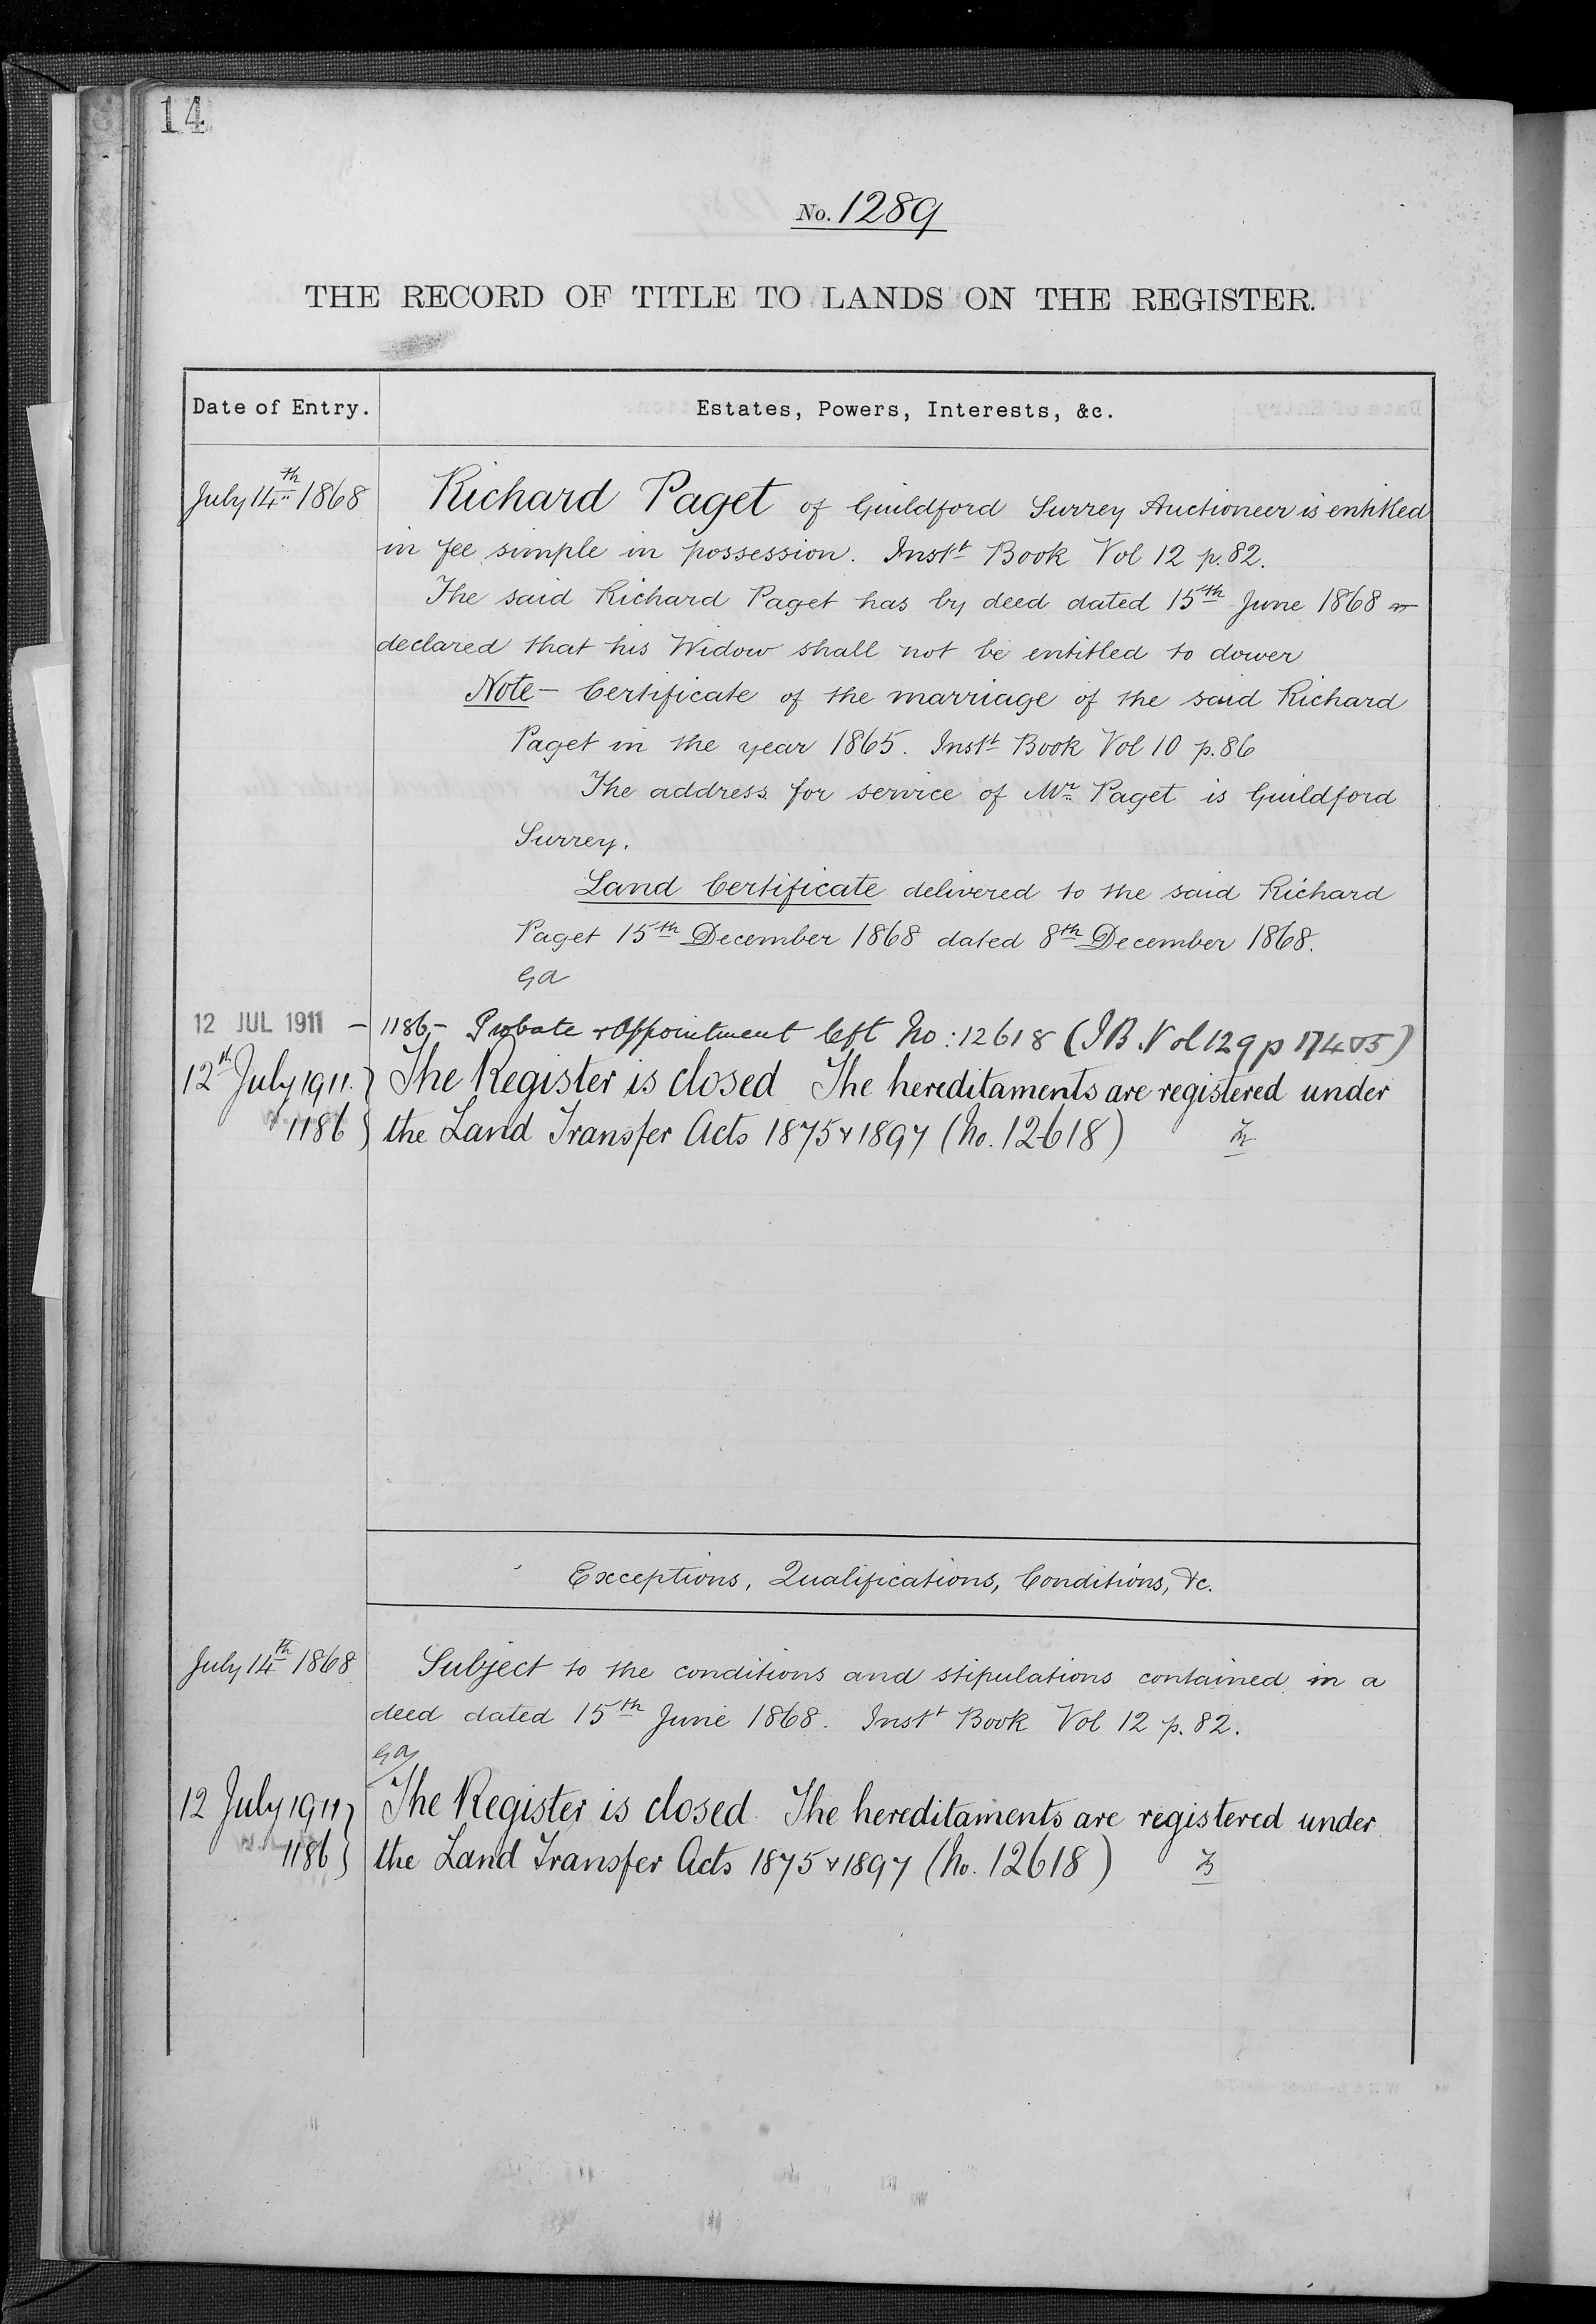 14
No. 1289
THE RECORD OF TITLE TO LANDS ON THE REGISTER.
Date of Entry.
Estates, Powers, Interests, &c.
July 14th 1868
Richard Paget of Guildford Surrey Auctioneer is entitled
in fee simple in possession. Instt Book Vol 12 p. 82.
The said Richard Paget has by deed dated 15th June 1868
declared that his Widow shall not be entitled to dower
Note - Certificate of the marriage of the said Richard
Paget in the year 1865. Instt Book Vol 10 p. 86
The address for service of Mr Paget is Guildford
Surrey.
Land Certificate delivered to the said Richard
Paget 15th December 1868 dated 8th December 1868.
GA
12 JUL 1911 - 1186 - Probate & Appointment left No: 12618 (I B. Vol 129 p
12th July 1911. } The Register is closed The hereditaments are registered under
1186 } the Land Transfer Acts 1875 & 1897 (No. 12618)
Exceptions, Qualifications, Conditions, &c.
July 14th 1868
Subject to the conditions and stipulations contained in a
deed dated 15th June 1868. Instt Book Vol 12 p. 82.
GA
12 July 1911 } The Register is closed. The hereditaments are registered under
1186 } the Land Transfer Acts 1875 & 1897 (No. 12618)